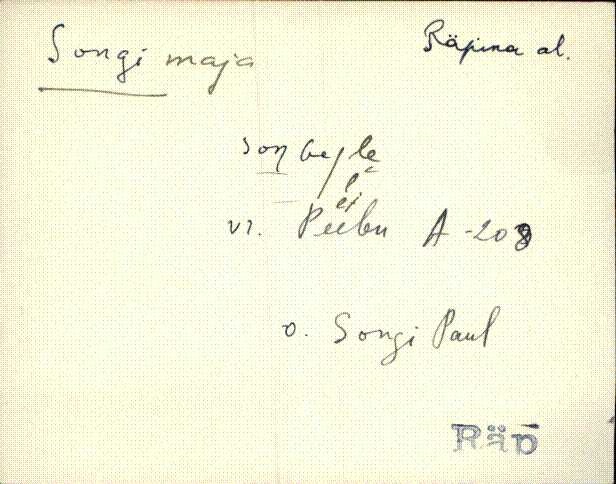 Songi maja
Räpina al.
vr. A-208
o. Songi Paul
Räp